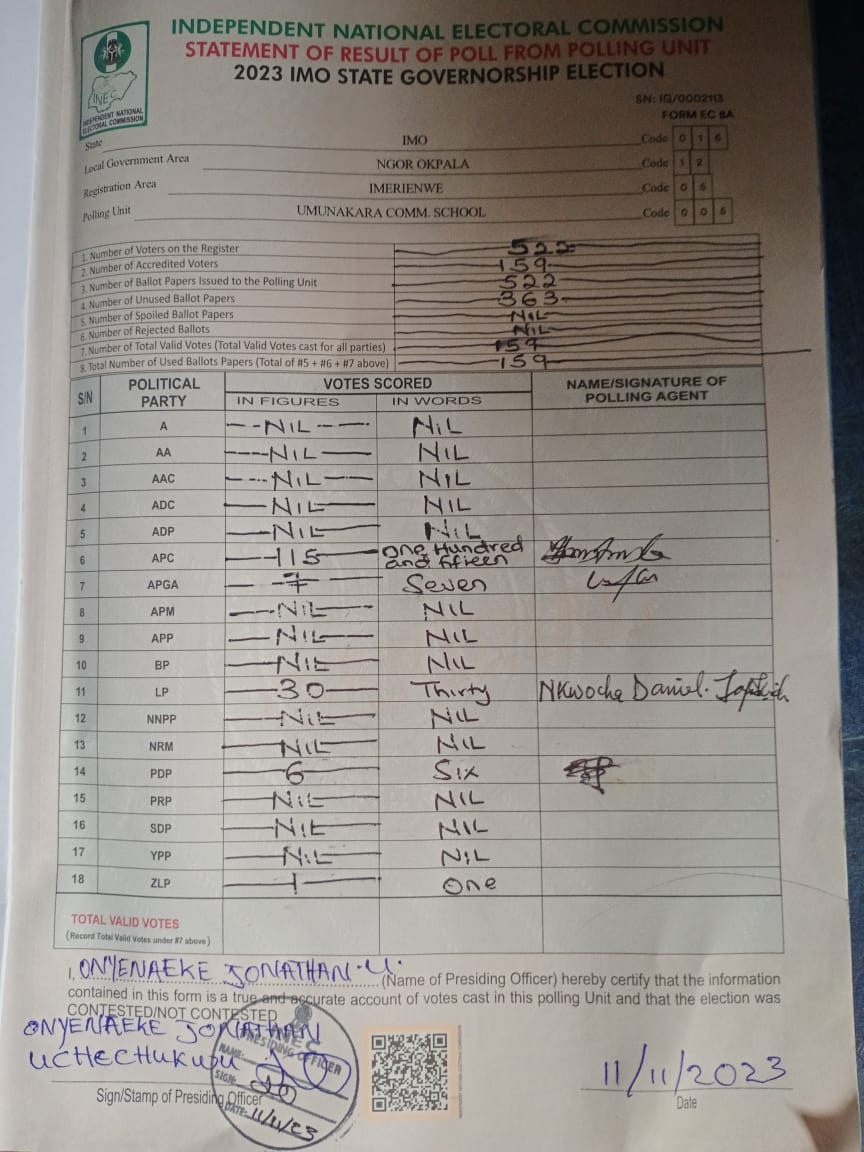 INDEPENDENT NATIONAL ELECTORAL COMMISSION
STATEMENT OF RESULT OF POLL FROM POLLING UNIT
2023 IMO STATE GOVERNORSHIP ELECTION
INEC
INDEPENDENT NATIONAL
ELECTORAL COMMISSION
SN: IG/0002113
FORM EC 8A
State IMO Code 0 1 6
Local Government Area NGOR OKPALA Code 1 2
Registration Area IMERIENWE Code 0 6
Polling Unit UMUNAKARA COMM. SCHOOL Code 0 0 6
1. Number of Voters on the Register 522
2. Number of Accredited Voters 159
3. Number of Ballot Papers Issued to the Polling Unit 522
4. Number of Unused Ballot Papers 363
5. Number of Spoiled Ballot Papers NIL
6. Number of Rejected Ballots NIL
7. Number of Total Valid Votes (Total Valid Votes cast for all parties) 159
8. Total Number of Used Ballots Papers (Total of #5 + #6 + #7 above) 159
S/N POLITICAL PARTY VOTES SCORED NAME/SIGNATURE OF POLLING AGENT
IN FIGURES IN WORDS
1 A NIL NIL
2 AA NIL NIL
3 AAC NIL NIL
4 ADC NIL NIL
5 ADP NIL NIL
6 APC 115 One Hundred and fifteen
7 APGA 7 Seven
8 APM NIL NIL
9 APP NIL NIL
10 BP NIL NIL
11 LP 30 Thirty NKwocha Daniel.
12 NNPP NIL NIL
13 NRM NIL NIL
14 PDP 6 Six
15 PRP NIL NIL
16 SDP NIL NIL
17 YPP NIL NIL
18 ZLP 1 One
TOTAL VALID VOTES
(Record Total Valid Votes under #7 above)
I, ONYENAEKE JONATHAN.U. (Name of Presiding Officer) hereby certify that the information
contained in this form is a true and accurate account of votes cast in this polling Unit and that the election was
CONTESTED/NOT CONTESTED
ONYENAEKE JONATHAN
UCHECHUKWU
INEC
PRESIDING OFFICER
NAME:
SIGN:
DATE: 11/11/23
Sign/Stamp of Presiding Officer
11/11/2023
Date